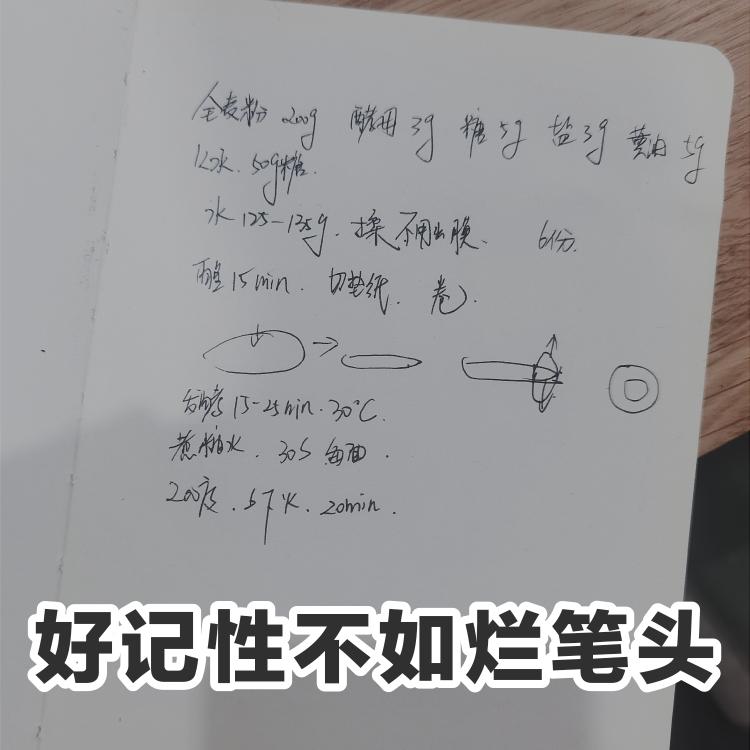 全麦粉 200g 酵母 3g 糖 5g 盐 3g 黄油 5g
水. 50g糖.
水 125-135g. 揉 不用出膜. 6份.
醒 15min. 切垫纸. 卷.
发酵 15-25min. 30°C.
煮糖水. 30S 每面.
200度. 上下火. 20min.
好记性不如烂笔头